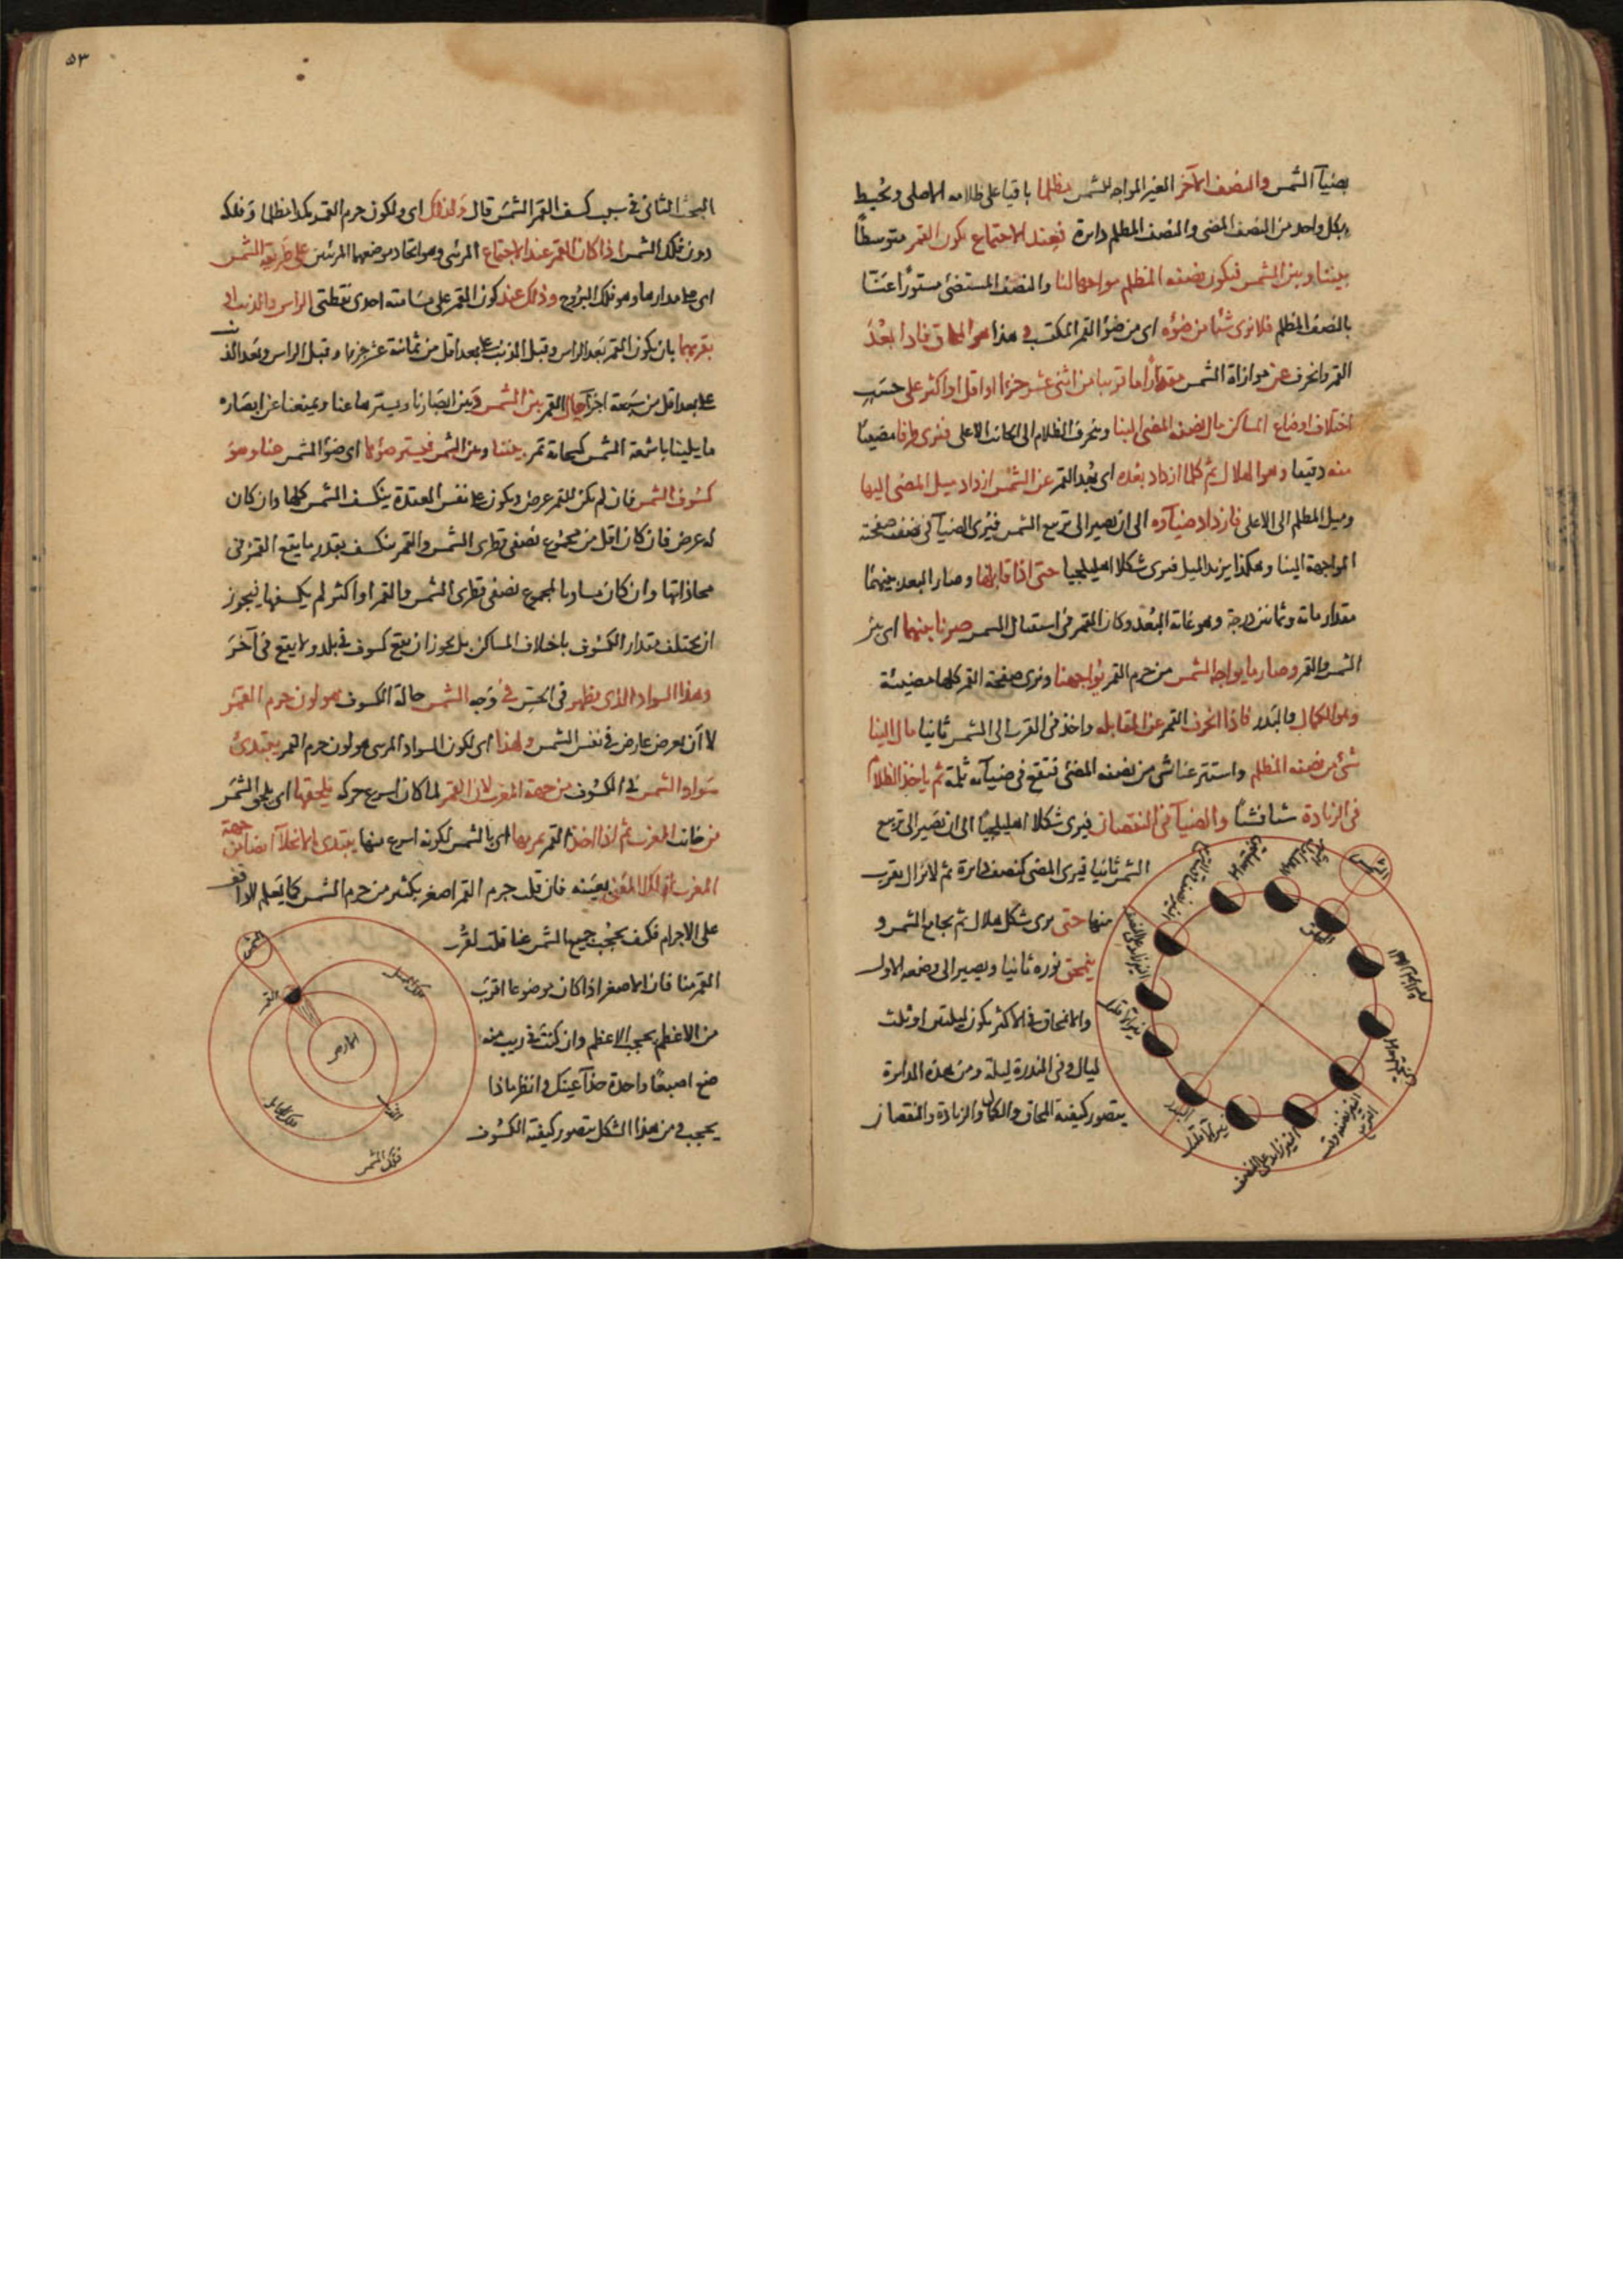 بضيآ الشمس والنصف الآخر الغير المواجه للشمس مظلما باقيا على ظلامه الاصلى ويحيط
بكل واحد من النصف المضى والنصف المظلم دائرة فعند الاجتماع يكون القمر متوسطا
بيننا وبين الشمس فيكون نصفه المظلم مواجها لنا والنصف المستضئ مستورا عنا
بالنصف المظلم فلا نرى شيئا من ضوءه اى من ضوء القمر المكتسب وهذا هو المحاق فاذا بعد
القمر وانحرف عن موازاة الشمس مقدارا ما قريبا من اثنى عشر جزءا او اقل او اكثر على حسب
اختلاف اوضاع المساكن مال نصفه المضى الينا وينحرف الظلام الى الجانب الاعلى فنرى طرفا مضيئا
منه دقيقا وهو الهلال ثم كلما ازداد بعده اى بعد القمر عن الشمس ازداد ميل المضى الينا
وميل المظلم الى الاعلى فازداد ضيآؤه الى ان يصير الى تربيع الشمس فيرى الضيآ فى نصف صفحته
المواجهة الينا وهكذا يزيد الميل فيرى شكلا اهليلجيا حتى اذا قابلها وصار البعد بينهما
مقدار مائة وثمانين درجة وهو غاية البعد وكان القمر فى استقبال الشمس صرنا بينهما اى بين
الشمس والقمر وصار ما يواجه الشمس من جرم القمر يواجهنا ونرى صفحة القمر كلها مضيئة
وهو الكمال والبدر فاذا انحرف القمر عن المقابلة واخذ فى القرب الى الشمس ثانيا مال الينا
شئ من نصفه المظلم واستتر عنا شئ من نصفه المضئ فتقع فى ضيآئه ثلمة ثم ياخذ الظلام
فى الزيادة شيئا فشيئا والضيآ فى النقصان فيرى شكلا اهليلجيا الى ان تصير الى تربيع
الشمس ثانيا فيرى المضى كنصف دائرة ثم لا يزال يقرب
منها حتى يرى شكل هلال ثم يجامع الشمس و
ينمحق نوره ثانيا ويصير الى وضعه الاول
والانمحاق فى الاكثر يكون ليلتين او ثلث
ليال وفى الندرة ليلة ومن هذه الدائرة
يتصور كيفية المحاق والكمال والزيادة والنقصان
الشمس
٥٣
البحث الثانى فى سبب كسف القمر الشمس قال ولذلك اى ولكون جرم القمر كمدا مظلما وفلكه
دون فلك الشمس اذا كان القمر عند الاجتماع المرئى وهو اتحاد موضعهما المرئيين على طريقة الشمس
اى على مدارها وهو فلك البروج وذلك عند كون القمر على مسامتة احدى نقطتى الراس والذنب او
بقربهما بان يكون القمر بعد الراس وقبل الذنب على بعد اقل من ثمانية عشر جزءا وقبل الراس وبعد الذنب
على بعد اقل من سبعة اجزآ حال القمر بين الشمس وبين ابصارنا ويسترها عنا ويمنعنا عن ابصار
ما يلينا باشعة الشمس كسحابة تمر بيننا وبين الشمس فيستر ضوءها اى ضوء الشمس عنا وهو
كسوف الشمس فان لم يكن للقمر عرض ويكون على نفس العقدة ينكسف الشمس كلها وان كان
له عرض فان كان اقل من مجموع نصفى قطرى الشمس والقمر ينكسف بقدر ما يقع القمر فى
محاذاتها وان كان مساويا لمجموع نصفى قطرى الشمس والقمر او اكثر لم يكسفها فيجوز
ان يختلف مقدار الكسوف باختلاف المساكن بل يجوز ان يقع كسوف فى بلد ولا يقع فى آخر
وهذا السواد الذى يظهر فى الحس فى وجه الشمس حالة الكسوف هو لون جرم القمر
لا انه عرض عارض فى نفس الشمس ولهذا اى لكون السواد المرئى هو لون جرم القمر يبتدئ
سواد الشمس فى الكسوف من جهة المغرب لان القمر لما كان اسرع حركة يلحقها اى يلحق الشمس
من جانب المغرب ثم اذا اخذ القمر يمر بها اى بالشمس لكونه اسرع منها يبتدئ الانجلآ ايضا من جهة
المغرب لذلك المعنى بعينه فان قلت جرم القمر اصغر بكثير من جرم الشمس كما يعلم
على الاجرام فكيف يحجب جميع الشمس عنا قلت لقرب
القمر منا فان الاصغر اذا كان موضوعا اقرب
من الاعظم يحجب الاعظم وان كنت فى ريب منه
ضع اصبعا واحدة حذآ عينك وانظر ماذا
يحجب ومن هذا الشكل يتصور كيفية الكسوف
الشمس
القمر
الارض
فلك الشمس